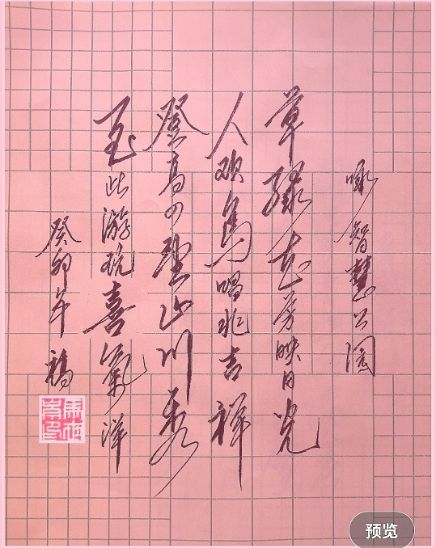 咏智慧公园
草绿花芳映日光
人欢鸟唱兆吉祥
登高四望山川秀
至此游玩喜氣洋
癸卯年
预览